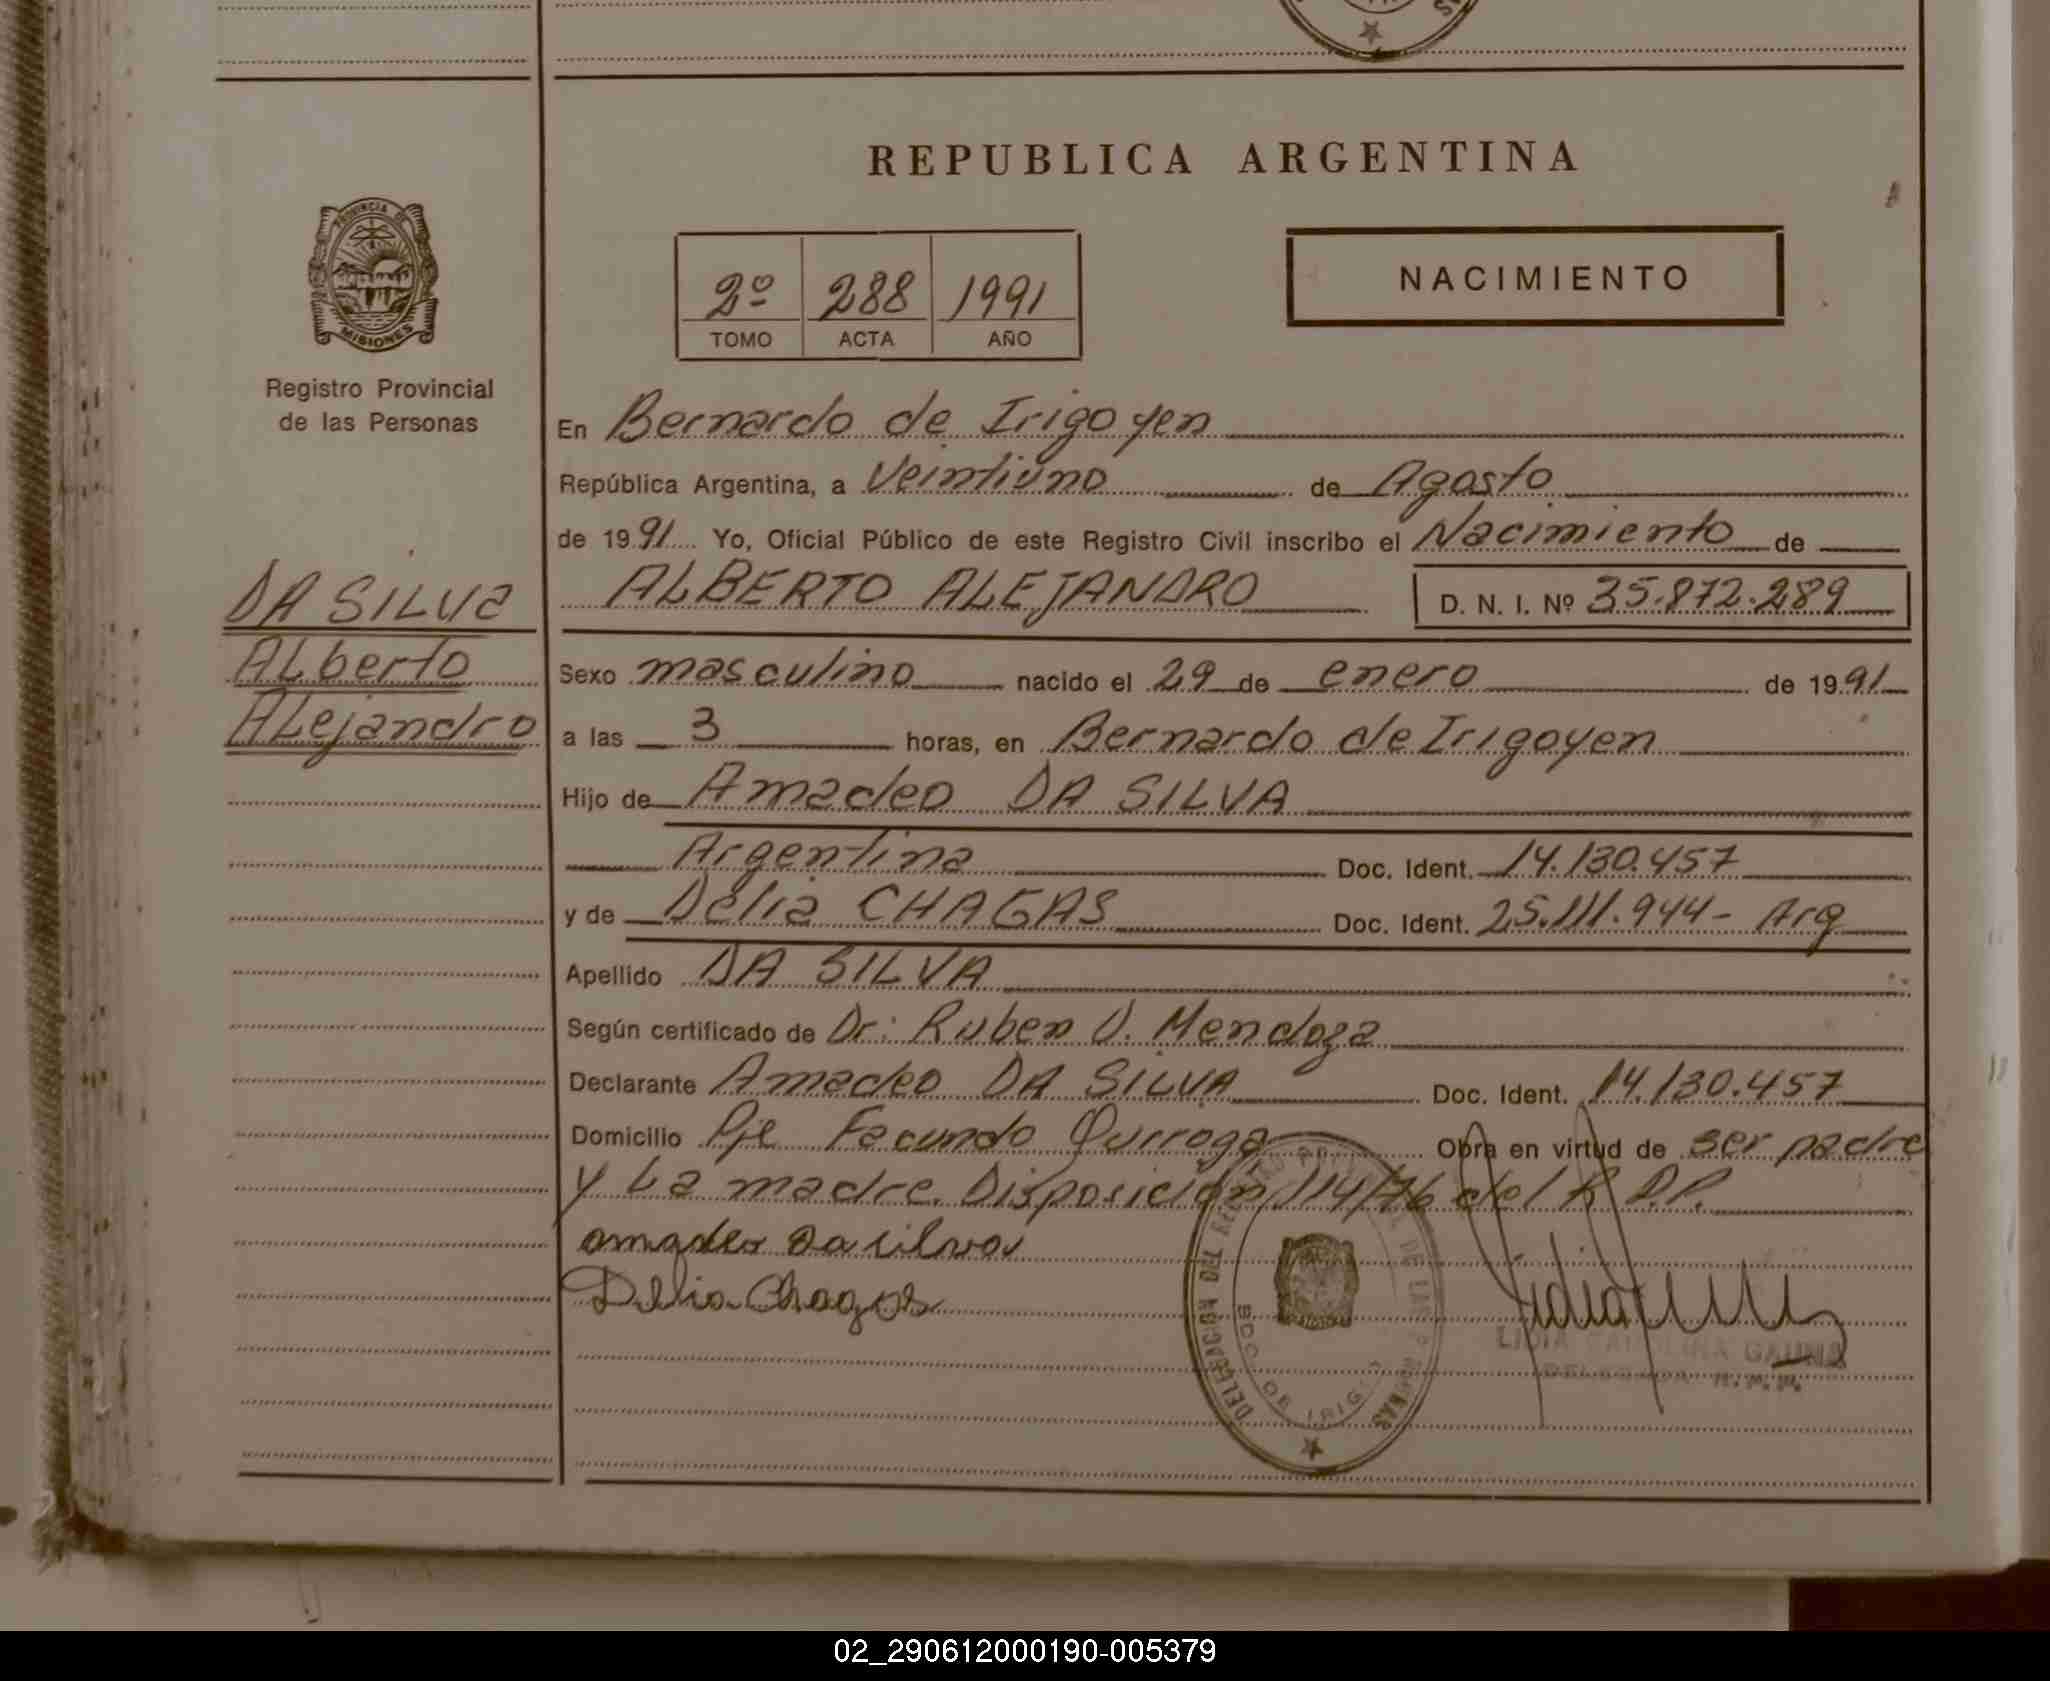 REPUBLICA ARGENTINA
PROVINCIA DE
MISIONES
Registro Provincial
de las Personas
2º 288 1991
TOMO ACTA AÑO
NACIMIENTO
En Bernardo de Irigoyen
República Argentina, a Veintiuno de Agosto
de 1991 Yo, Oficial Público de este Registro Civil inscribo el Nacimiento de
ALBERTO ALEJANDRO D. N. I. Nº 35.872.289
DA SILVa
ALberto
ALejandro
Sexo masculino nacido el 29 de enero de 1991
a las 3 horas, en Bernardo de Irigoyen
Hijo de Amadeo DA SILVA
Argentina Doc. Ident. 14.130.457
y de Delia CHAGAS Doc. Ident. 25.111.944- Arg
Apellido DA SILVA
Según certificado de Dr: Ruben D. Mendoza
Declarante Amadeo DA SILVA Doc. Ident. 14.130.457
Domicilio Pje Facundo Quiroga Obra en virtud de ser padre
y La madre. Disposición 114/76 del R.P.P.
amadeo Da silva
Delia Chagas
DELEGACION DEL REGISTRO PROVINCIAL DE LAS PERSONAS
BDO. DE IRIGOYEN
LIDIA CAROLINA GAUNA
DELEGADA R.P.P.
02_290612000190-005379